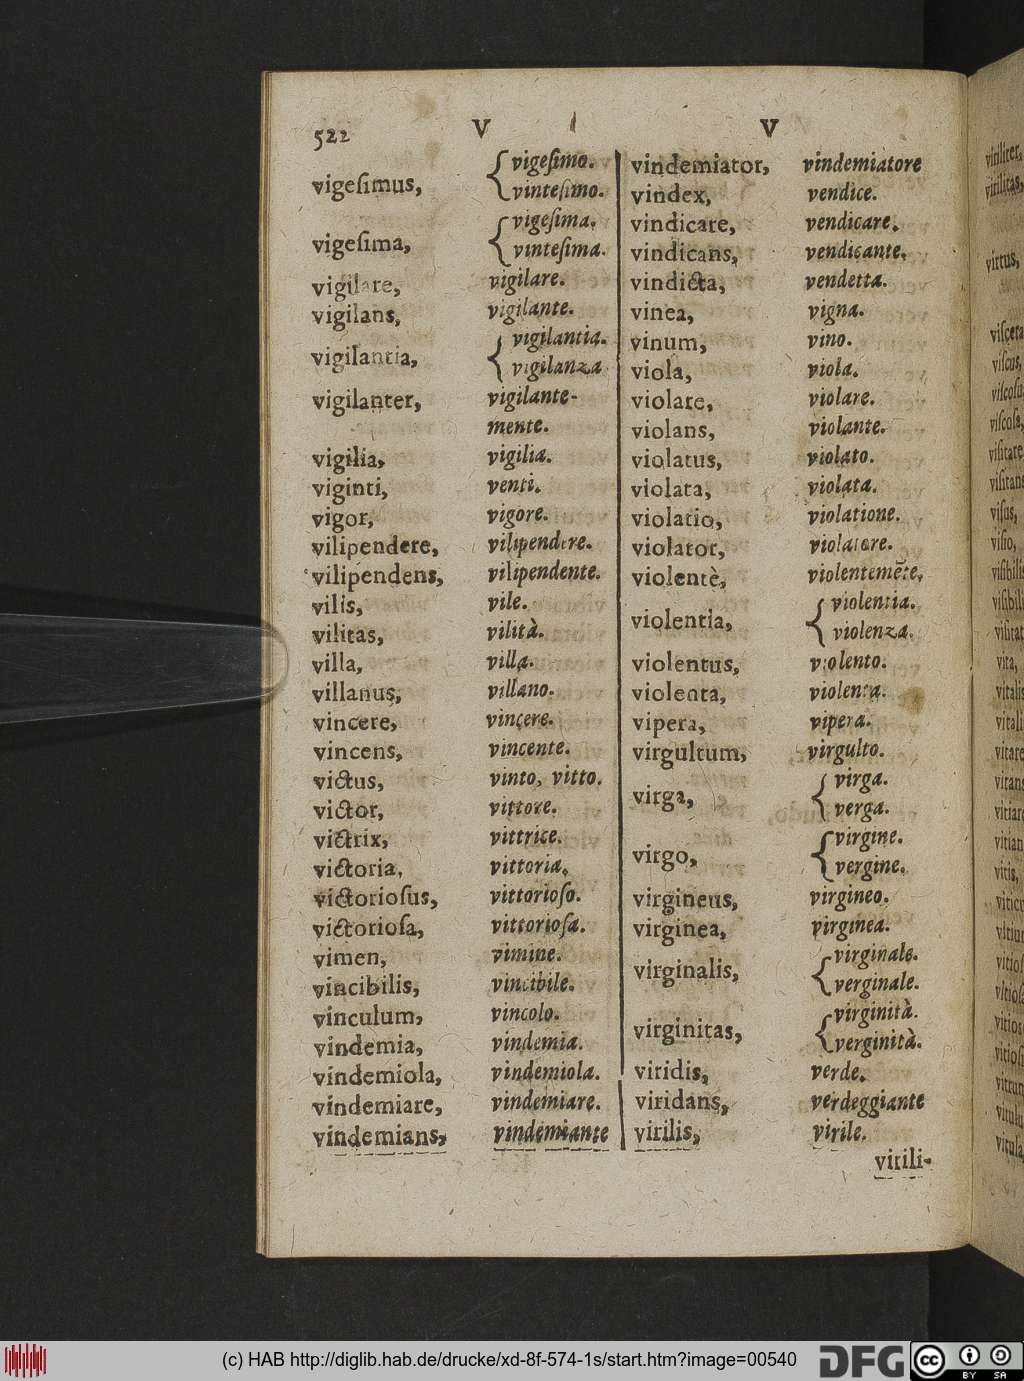 522 V V
vigeſimus, vigeſimo.
vinteſimo.
vigeſima, vigeſima.
vinteſima.
vigilare, vigilare.
vigilans, vigilante.
vigilantia, vigilantia.
vigilanza
vigilanter, vigilante-
mente.
vigilia, vigilia.
viginti, venti.
vigor, vigore.
vilipendere, vilipendere.
vilipendens, vilipendente.
vilis, vile.
vilitas, vilità.
villa, villa.
villanus, villano.
vincere, vincere.
vincens, vincente.
victus, vinto, vitto.
victor, vittore.
victrix, vittrice.
victoria, vittoria.
victorioſus, vittorioſo.
victorioſa, vittorioſa.
vimen, vimine.
vincibilis, vincibile.
vinculum, vincolo.
vindemia, vindemia.
vindemiola, vindemiola.
vindemiare, vindemiare.
vindemians, vindemiante
vindemiator, vindemiatore
vindex, vendice.
vindicare, vendicare.
vindicans, vendicante.
vindicta, vendetta.
vinea, vigna.
vinum, vino.
viola, viola.
violare, violare.
violans, violante.
violatus, violato.
violata, violata.
violatio, violatione.
violator, violatore.
violentè, violentemēte.
violentia, violentia.
violenza.
violentus, violento.
violenta, violenta.
vipera, vipera.
virgultum, virgulto.
virga, virga.
verga.
virgo, virgine.
vergine.
virgineus, virgineo.
virginea, virginea.
virginalis, virginale.
verginale.
virginitas, virginità.
verginità.
viridis, verde.
viridans, verdeggiante
virilis, virile.
virili-
viriliter,
virilitas,
virtus,
viſcera
viſcus,
viſcoſa,
viſitare
viſitans
viſus,
viſio,
viſibilis
viſibili
viſitat
vita,
vitalis
vitali
vitare
vitans
vitiare
vitian
vitis,
vitioſ
vitioſ
vitrum
vitulu
vitula
(c) HAB http://diglib.hab.de/drucke/xd-8f-574-1s/start.htm?image=00540
DFG
cc BY SA